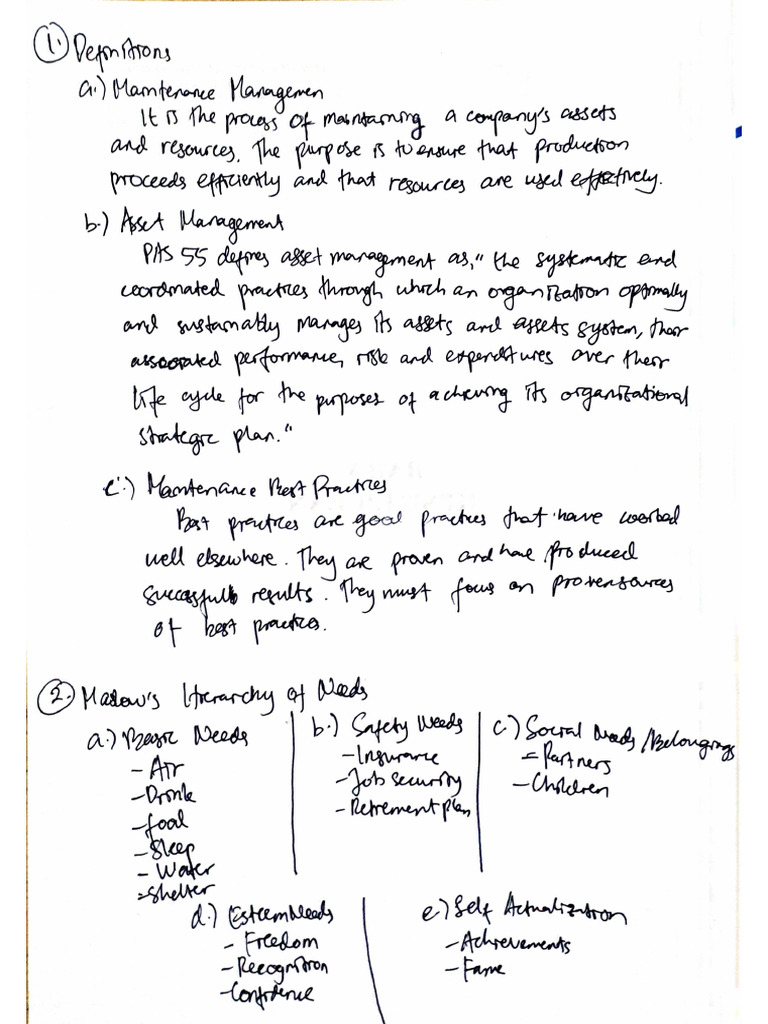 1. Definitions
a.) Maintenance Managemen
It is the process of maintaining a company's assets
and resources. The purpose is to ensure that production
proceeds efficiently and that resources are used effectively.
b.) Asset Management
PAS 55 defines asset management as, "the systematic and
coordinated practices through which an organization optimally
and sustainably manages its assets and assets system, their
associated performance, risk and expenditures over their
life cycle for the purposes of achieving its organizational
strategic plan."
c.) Maintenance Best Practices
Best practices are good practices that have worked
well elsewhere. They are proven and have produced
successful results. They must focus on proven sources
of best practices.
2. Maslow's Hierarchy of Needs
a.) Basic Needs
- Air
- Drink
- food
- Sleep
- Water
- Shelter
b.) Safety Needs
- Insurance
- Job security
- Retirement plan
c.) Social Needs/Belongings
- Partners
- Children
d.) Esteem Needs
- Freedom
- Recognition
- Confidence
e.) Self Actualization
- Achievements
- Fame